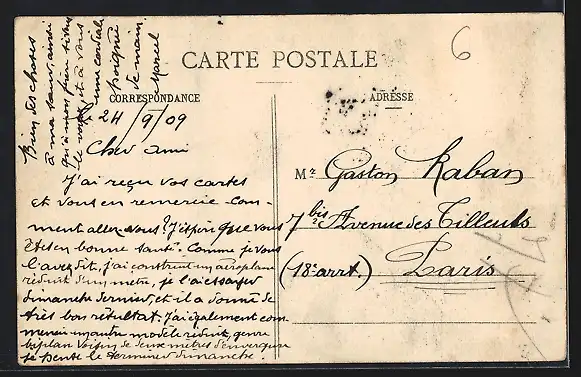 CARTE POSTALE
CORRESPONDANCE
ADRESSE
6
24/9/09
Cher ami
J'ai reçu vos cartes
et vous en remercie. Com-
ment allez-vous? J'espère que vous
êtes en bonne santé. Comme je vous
l'avez dit, j'ai construit un aéroplane
réduit d'un mètre, je l'ai essayé
dimanche dernier, et il a donné de
très bon résultat. J'ai également com
mencer un autre modèle réduit, genre
biplan Voisin de deux mètres d'envergure
je pense le terminer dimanche.
Bien des choses
à ma sœur, ainsi
qu'à mon
et à vous
une cordiale
poignée
de main
Marcel
Mr Gaston Raban
7 bis Avenue des Tilleuls
(18e arrt.) Paris